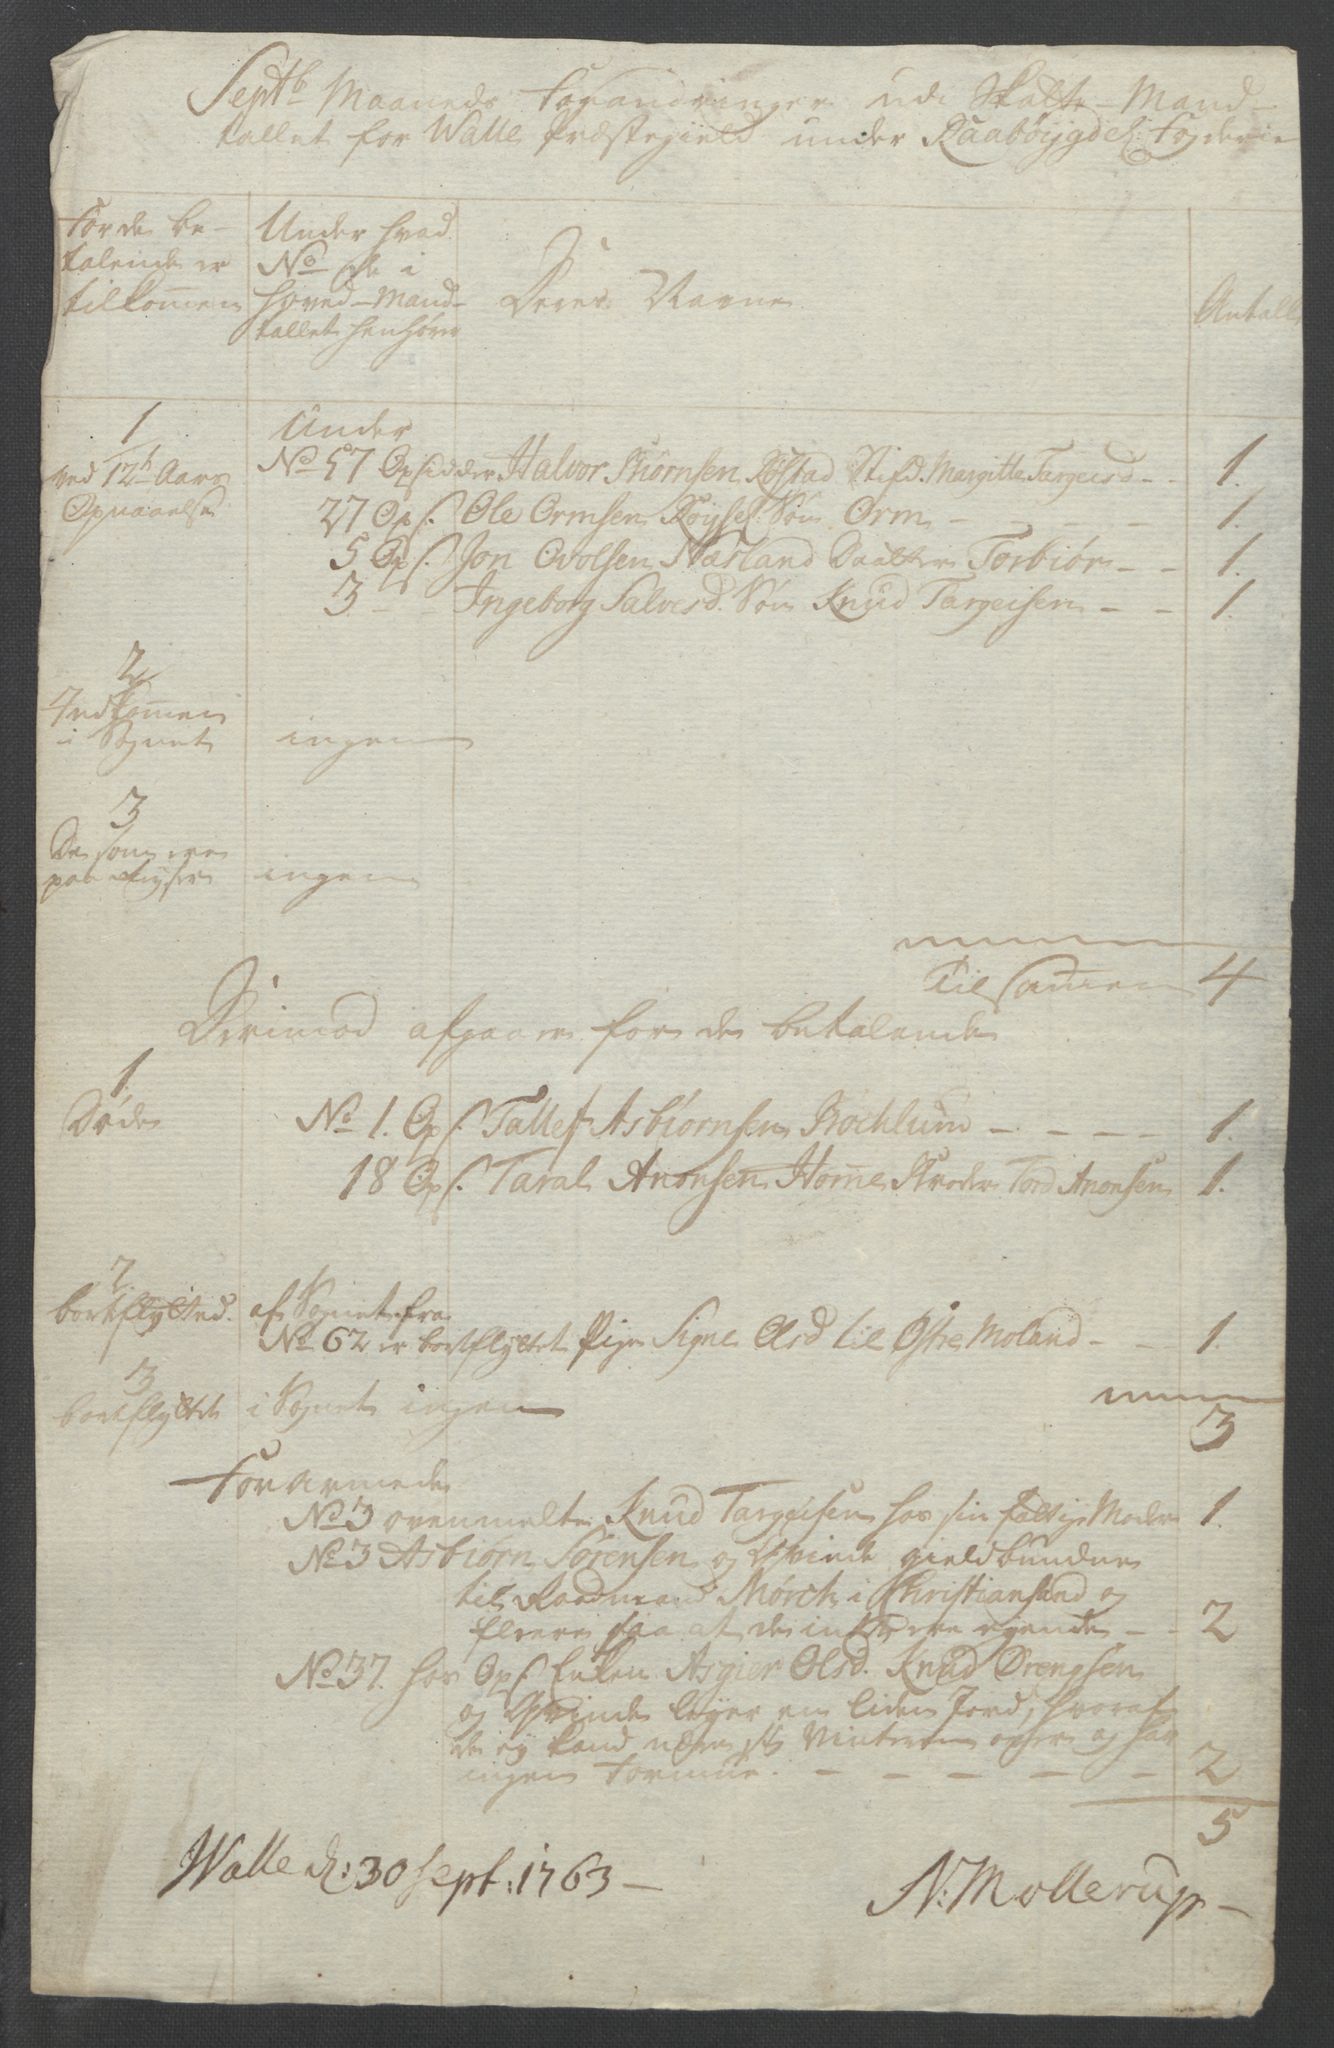 Septb. Maaneds Forandringer udi Skatte-Mand-
tallet for Walle Præstegield under Raabøÿgdel: Fogderie
For de be-
talende er
tilkom̄en
Under hvad
No de i
Hoved-Mand-
tallet henhører
Deres Navne
Antall
1
ved 12te Aars
Opnaaelse
Under
No 57 Opsidder Halvor Biørnsen Rÿstad Stifd. Margitte Targeisd - - 1.
27 Ops. Ole Ormsen Røysel: Søn Orm - - - - 1.
5 Ops. Jon Evolsen Næsland Daatter Torbiør - - 1.
3 - - Ingeborg Salvesd. Søn Knud Targeisen - - 1.
2
Indkom̄en
i Sognet ingen
3
De som ere
paa ingen
Tilsam̄en 4
Derimod afgaaer for de betalende
1.
Døde No 1. Ops. Tallef Asbiørnsen Brochlum - - - - 1.
18 Ops. Taral Anonsen Hom̄e Broder Tord Anonsen 1.
2.
bortflÿtted. af Sognet fra
No 62 er bortflÿttet Pige Signe Olsd til Østre Moland - - 1.
3
bortflÿttet i Sognet ingen
3
Forarmede
No 3 ovenmelte Knud Targeisen hos sin fattige Moder 1.
No 3 Asbiørn Sørensen og Qvinde gieldbundne
til Raadmand Mørch i Christiansand og
fleere saa at de intet ere ejende - - 2
No 37. hos Ops. Enken Asgier Olsd. Knud Drengsen
og Qvinde leÿer en liden Jord, hvoraf
de eÿ kand nære sig Vinteren over og har
ingen Formue. - - - - - 2
5
Walle d: 30 Sept: 1763 -
N: Mollerup -